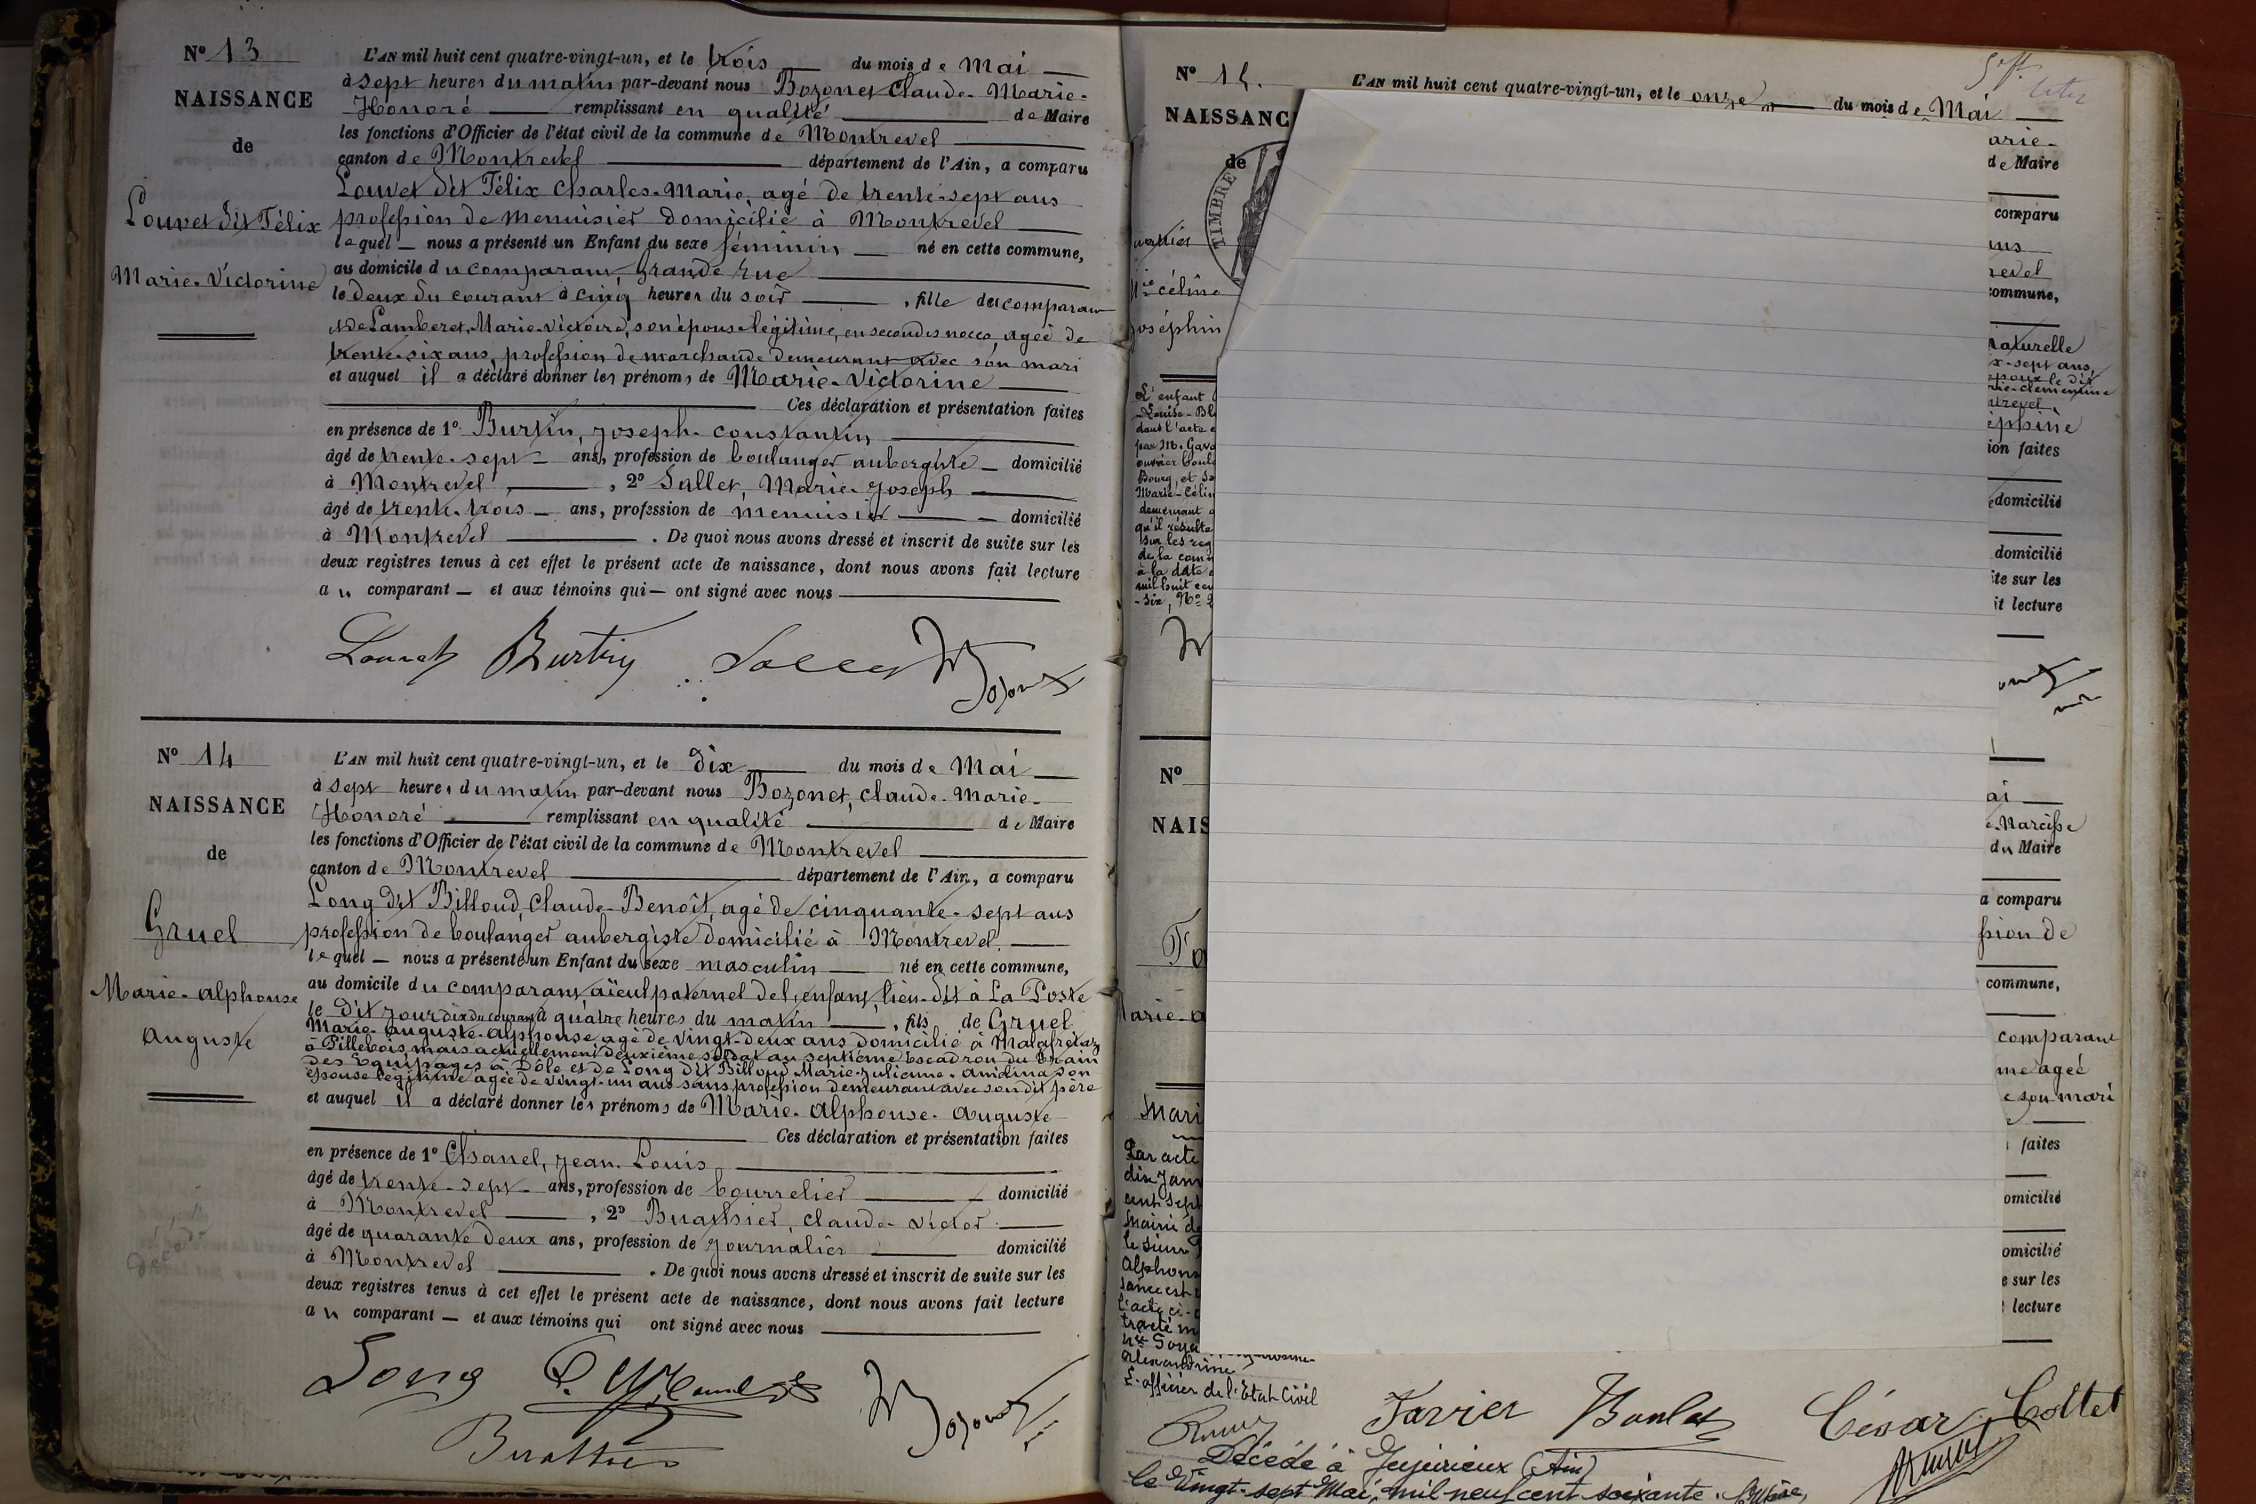 N° 13
NAISSANCE
de
Louvet dit Félix
Marie-Victorine
L'AN mil huit cent quatre-vingt-un, et le trois du mois de Mai
à sept heures du matin par-devant nous Bozonet Claude-Marie-
Honoré remplissant en qualité de Maire
les fonctions d'Officier de l'état civil de la commune de Montrevel
canton de Montrevel département de l'Ain, a comparu
Louvet dit Félix Charles-Marie, agé de trente-sept ans
profession de menuisier domicilié à Montrevel
lequel nous a présenté un Enfant du sexe féminin né en cette commune,
au domicile du comparant, grande rue
le deux du courant à cinq heures du soir, fille du comparant
et de Lamberet, Marie-Victoire, son épouse légitime, en secondes noces, agée de
trente-six ans, profession de marchande demeurant avec son mari
et auquel il a déclaré donner les prénoms de Marie-Victorine
Ces déclaration et présentation faites
en présence de 1° Burtin, Joseph-Constantin
âgé de trente-sept ans, profession de boulanger aubergiste domicilié
à Montrevel, 2° Sallet, Marie-Joseph
âgé de trente-trois ans, profession de menuisier domicilié
à Montrevel. De quoi nous avons dressé et inscrit de suite sur les
deux registres tenus à cet effet le présent acte de naissance, dont nous avons fait lecture
au comparant et aux témoins qui ont signé avec nous
Louvet Burtin Sallet Bozonet
N° 14
NAISSANCE
de
Gruel
Marie-Alphonse
Auguste
L'AN mil huit cent quatre-vingt-un, et le dix du mois de Mai
à sept heures du matin par-devant nous Bozonet, Claude-Marie-
Honoré remplissant en qualité de Maire
les fonctions d'Officier de l'état civil de la commune de Montrevel
canton de Montrevel département de l'Ain, a comparu
Long dit Billoud, Claude-Benoît, agé de cinquante-sept ans
profession de boulanger aubergiste domicilié à Montrevel
lequel nous a présenté un Enfant du sexe masculin né en cette commune,
au domicile du comparant, aïeul paternel de l'enfant, lieu-dit à La Poste
le dit jour dix du courant à quatre heures du matin, fils de Gruel
Marie-Auguste-Alphonse agé de vingt-deux ans domicilié à Malafretaz
à Pillebois, mais actuellement deuxième soldat au septième Escadron du Train
des Equipages à Dôle et de Long dit Billoud Marie-Julienne-Andina son
épouse légitime agée de vingt-un ans sans profession demeurant avec son dit père
et auquel il a déclaré donner les prénoms de Marie-Alphonse-Auguste
Ces déclaration et présentation faites
en présence de 1° Chanel, Jean-Louis
âgé de trente-sept ans, profession de bourrelier domicilié
à Montrevel, 2° Buathier, Claude-Victor
âgé de quarante deux ans, profession de journalier domicilié
à Montrevel. De quoi nous avons dressé et inscrit de suite sur les
deux registres tenus à cet effet le présent acte de naissance, dont nous avons fait lecture
au comparant et aux témoins qui ont signé avec nous
Long
Buathier Bozonet
N° 15.
NAISSANC
de
TIMBRE
céline
Joséphin
L'AN mil huit cent quatre-vingt-un, et le onze du mois de Mai
arie-
de Maire
comparu
ans
revel
commune,
naturelle
x-sept ans,
ntrevel,
éphine
ion faites
domicilié
domicilié
ite sur les
it lecture
L'enfant
Louise-Bl
dont l'acte
par M. Gava
ouvrier boula
Bourg, et
Marie-Célin
demeurant
qu'il résulte
sur les reg
de la com
à la date
mil huit cen
-six, N°
N°
NAIS
Marie-a
ai
Narcisse
du Maire
a comparu
ssion de
commune,
comparant
me agée
son mari
faites
omicilié
omicilié
e sur les
lecture
Mari
Par acte
dix Jan
cent sept
Mairie de
le sieur
Alphons
l'acte ci-
tracté m
Alexandrine
L'officier de l'Etat Civil
Farrier César Cottet
Décédé à Jujurieux (Ain)
le vingt-sept Mai mil neuf cent soixante